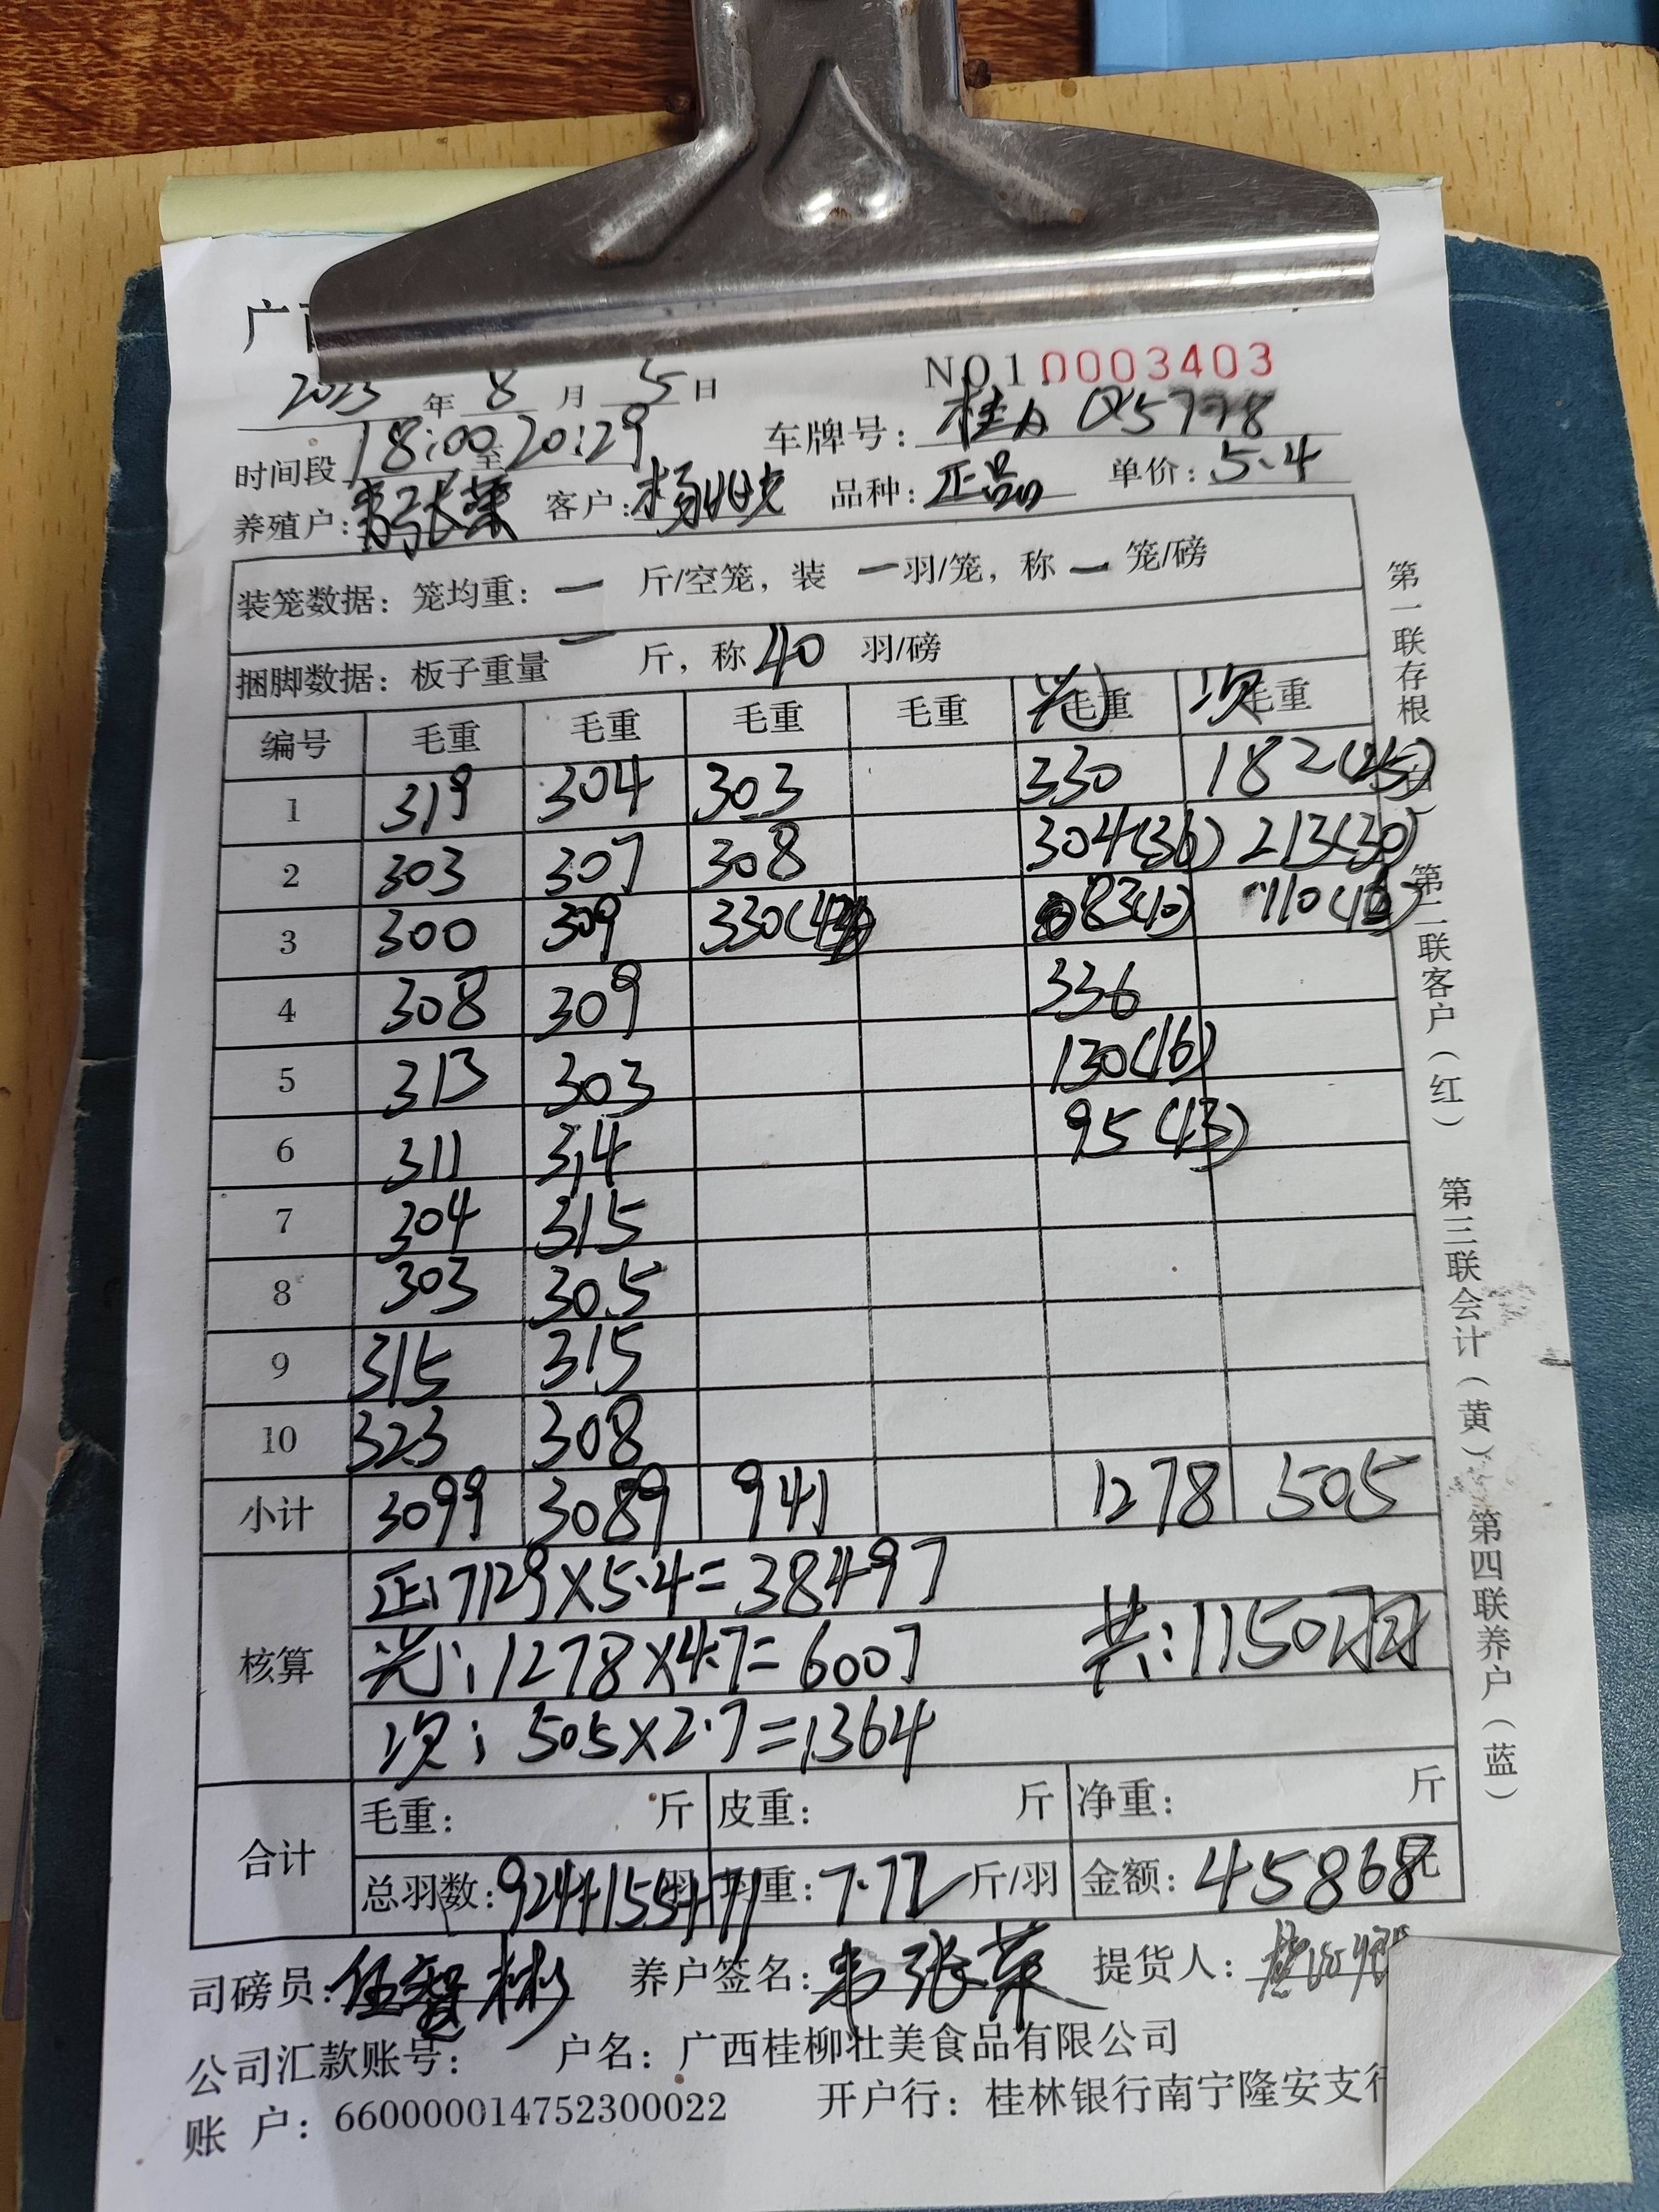 广西
2023年8月5日 NO1 0003403
时间段 18:00至20:29 车牌号: 桂A Q5778
养殖户: 韦张荣 客户: 品种: 正品 单价: 5.4
装笼数据: 笼均重: — 斤/空笼, 装 — 羽/笼, 称 — 笼/磅
捆脚数据: 板子重量 — 斤, 称 40 羽/磅
编号 毛重 毛重 毛重 毛重 光 毛重 次 毛重
1 319 304 303 330 182(25)
2 303 307 308 304(36) 213(30)
3 300 309 330 83(10) 110(16)
4 308 309 336
5 313 303 130(16)
6 311 314 95(13)
7 304 315
8 303 305
9 315 315
10 323 308
小计 3099 3089 941 1278 505
核算
正: 7129×5.4=38497
光: 1278×4.7=6007 共: 1150羽
次: 505×2.7=1364
合计
毛重: 斤 皮重: 斤 净重: 斤
总羽数: 924+155+71 羽 羽重: 7.72 斤/羽 金额: 45868元
司磅员: 伍智彬 养户签名: 韦张荣 提货人:
公司汇款账号: 户名: 广西桂柳壮美食品有限公司
账 户: 660000014752300022 开户行: 桂林银行南宁隆安支行
第一联存根(白) 第二联客户(红) 第三联会计(黄) 第四联养户(蓝)